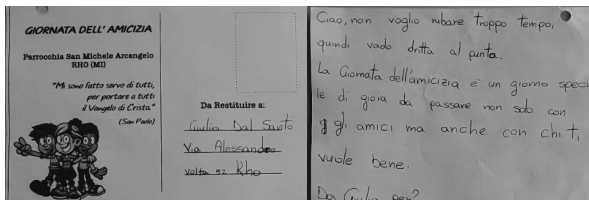 GIORNATA DELL' AMICIZIA
Parrocchia San Michele Arcangelo
RHO (MI)
"Mi sono fatto servo di tutti,
per portare a tutti
il Vangelo di Cristo."
(San Paolo)
Da Restituire a:
Giulia Dal Santo
Via Alessandro
volta 52 Rho
Ciao, non voglio rubare troppo tempo,
quindi vado dritta al punto.
La Giornata dell'amicizia è un giorno specia
le di gioia da passare non solo con
gli amici ma anche con chi ti
vuole bene.
Da Giulia per?